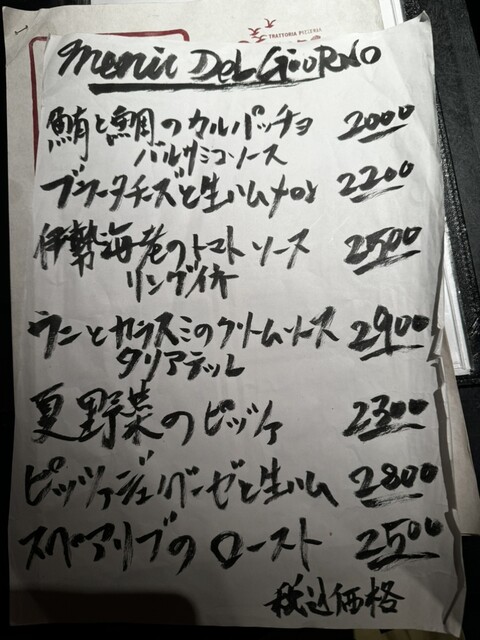 TRATTORIA PIZZERIA
Menu DEL GiORNO
鮪と鯛のカルパッチョ 2000
バルサミコソース
ブラータチーズと生ハムメロン 2200
伊勢海老のトマトソース 2500
リングイネ
ウニとカラスミのクリームソース 2900
タリアテッレ
夏野菜のピッツァ 2300
ピッツァジェノベーゼと生ハム 2800
スペアリブのロースト 2500
税込価格